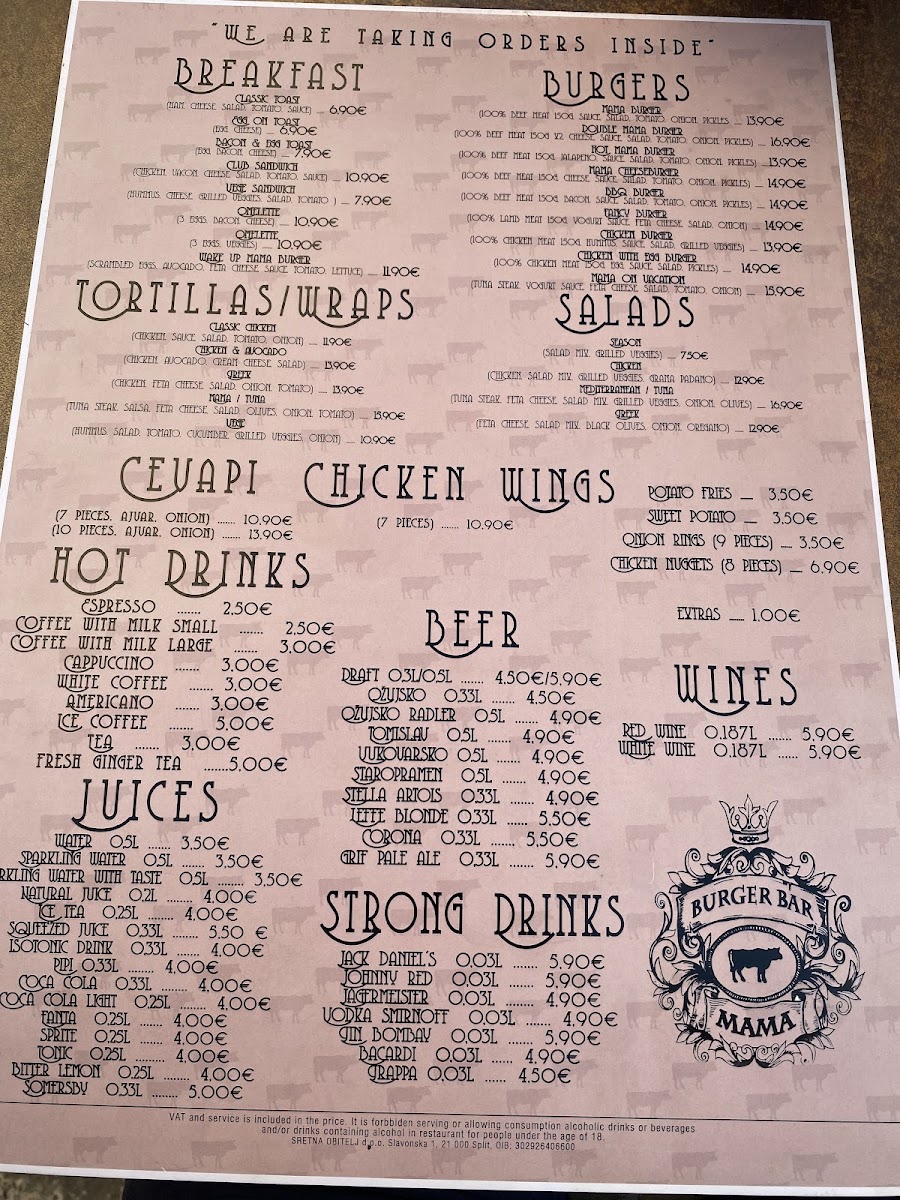 "WE ARE TAKING ORDERS INSIDE"
BREAKFAST
CLASSIC TOAST
(HAM, CHEESE, SALAD, TOMATO, SAUCE) ... 6,90€
EGG ON TOAST
(EGG, CHEESE) ... 6,90€
BACON & EGG TOAST
(EGG, BACON, CHEESE) ... 7,90€
CLUB SANDWICH
(CHICKEN, VACON, CHEESE, SALAD, TOMATO, SAUCE) ... 10,90€
VEGE SANDWICH
(HUMMUS, CHEESE, GRILLED VEGGIES, SALAD, TOMATO ) ... 7,90€
OMELETTE
(3 EGGS, BACON, CHEESE) ... 10,90€
OMELETTE
(3 EGGS, VEGGIES) ... 10,90€
WAKE UP MAMA BURGER
(SCRAMBLED EGGS, AVOCADO, FETA CHEESE, SAUCE, TOMATO, LETTUCE) ... 11,90€
BURGERS
MAMA BURGER
(100% BEEF MEAT 150G, SAUCE, SALAD, TOMATO, ONION, PICKLES ... 13,90€
DOUBLE MAMA BURGER
(100% BEEF MEAT 150G X2, CHEESE, SAUCE, SALAD, TOMATO, ONION, PICKLES) ... 16,90€
HOT MAMA BURGER
(100% BEEF MEAT 150G, JALAPENO, SAUCE, SALAD, TOMATO, ONION, PICKLES) ...13,90€
MAMA CHEESEBURGER
(100% BEEF MEAT 150G, CHEESE, SAUCE, SALAD, TOMATO, ONION, PICKLES) ... 14,90€
BBQ BURGER
(100% BEEF MEAT 150G, BACON, SAUCE, SALAD, TOMATO, ONION, PICKLES) ... 14,90€
FANCY BURGER
(100% LAMB MEAT 150G, YOGURT SAUCE, FETA CHEESE, SALAD, ONION) ... 14,90€
CHICKEN BURGER
(100% CHICKEN MEAT 150G, HUMMUS, SAUCE, SALAD, GRILLED VEGGIES) ... 13,90€
CHICKEN WITH EGG BURGER
(100% CHICKEN MEAT 150G, EGG, SAUCE, SALAD, PICKLES) ... 14,90€
MAMA ON VACATION
(TUNA STEAK, YOGURT SAUCE, FETA CHEESE, SALAD, TOMATO, ONION) ... 15,90€
TORTILLAS/WRAPS
CLASSIC CHICKEN
(CHICKEN, SAUCE, SALAD, TOMATO, ONION) ... 11,90€
CHICKEN & AVOCADO
(CHICKEN, AVOCADO, CREAM CHEESE, SALAD) ... 13,90€
GREEK
(CHICKEN, FETA CHEESE, SALAD, ONION, TOMATO) ... 13,90€
MAMA / TUNA
(TUNA STEAK, SALSA, FETA CHEESE, SALAD, OLIVES, ONION, TOMATO) ... 15,90€
VEGE
(HUMMUS, SALAD, TOMATO, CUCUMBER, GRILLED VEGGIES, ONION) ... 10,90€
SALADS
SEASON
(SALAD MIX, GRILLED VEGGIES) ... 7,50€
CHICKEN
(CHICKEN, SALAD MIX, GRILLED VEGGIES, GRAMA PADANO) ... 12,90€
MEDITERRANEAN / TUNA
(TUNA STEAK, FETA CHEESE, SALAD MIX, GRILLED VEGGIES, ONION, OLIVES) ... 16,90€
GREEK
(FETA CHEESE, SALAD MIX, BLACK OLIVES, ONION, OREGANO) ... 12,90€
CEVAPI
(7 PIECES, AJVAR, ONION) ....... 10,90€
(10 PIECES, AJVAR, ONION) ....... 13,90€
CHICKEN WINGS
(7 PIECES) ....... 10,90€
POTATO FRIES ... 3,50€
SWEET POTATO ... 3,50€
ONION RINGS (9 PIECES) ... 3,50€
CHICKEN NUGGETS (8 PIECES) ... 6,90€
EXTRAS .... 1,00€
HOT DRINKS
ESPRESSO ....... 2,50€
COFFEE WITH MILK SMALL ....... 2,50€
COFFEE WITH MILK LARGE ....... 3,00€
CAPPUCCINO ....... 3,00€
WHITE COFFEE ....... 3,00€
AMERICANO ....... 3,00€
ICE COFFEE ...... 5,00€
TEA ....... 3,00€
FRESH GINGER TEA .......5,00€
BEER
DRAFT 0,3L/0,5L ....... 4,50€/5,90€
OŽUJSKO 0,33L ....... 4,50€
OŽUJSKO RADLER 0,5L ....... 4,90€
TOMISLAV 0,5L ....... 4,90€
VUKOVARSKO 0,5L ....... 4,90€
STAROPRAMEN 0,5L ....... 4,90€
STELLA ARTOIS 0,33L ....... 4,90€
LEFFE BLONDE 0,33L ....... 5,50€
CORONA 0,33L ....... 5,50€
GRIF PALE ALE 0,33L ....... 5,90€
WINES
RED WINE 0,187L ...... 5,90€
WHITE WINE 0,187L ...... 5,90€
JUICES
WATER 0,5L ....... 3,50€
SPARKLING WATER 0,5L ....... 3,50€
RKLING WATER WITH TASTE 0,5L ....... 3,50€
NATURAL JUICE 0,2L ....... 4,00€
ICE TEA 0,25L ....... 4,00€
SQUEEZED JUICE 0,33L ........ 5,50 €
ISOTONIC DRINK 0,33L ....... 4,00€
PIPI 0,33L ....... 4,00€
COCA COLA 0,33L ....... 4,00€
COCA COLA LIGHT 0,25L ....... 4,00€
FANTA 0,25L ....... 4,00€
SPRITE 0,25L ....... 4,00€
TONIC 0,25L ....... 4,00€
BITTER LEMON 0,25L ........ 4,00€
SOMERSBY 0,33L ........ 5,00€
STRONG DRINKS
JACK DANIEL'S 0,03L ....... 5,90€
JOHNNY RED 0,03L ....... 5,90€
JAGERMEISTER 0,03L ....... 4,90€
VODKA SMIRNOFF 0,03L ....... 4,90€
GIN BOMBAY 0,03L ....... 5,90€
BACARDI 0,03L ....... 4,90€
GRAPPA 0,03L ...... 4,50€
BURGER BAR
MAMA
VAT and service is included in the price. It is forbbiden serving or allowing consumption alcoholic drinks or beverages
and/or drinks containing alcohol in restaurant for people under the age of 18.
SRETNA OBITELJ d.o.o. Slavonska 1, 21 000 Split, OIB: 302926406600